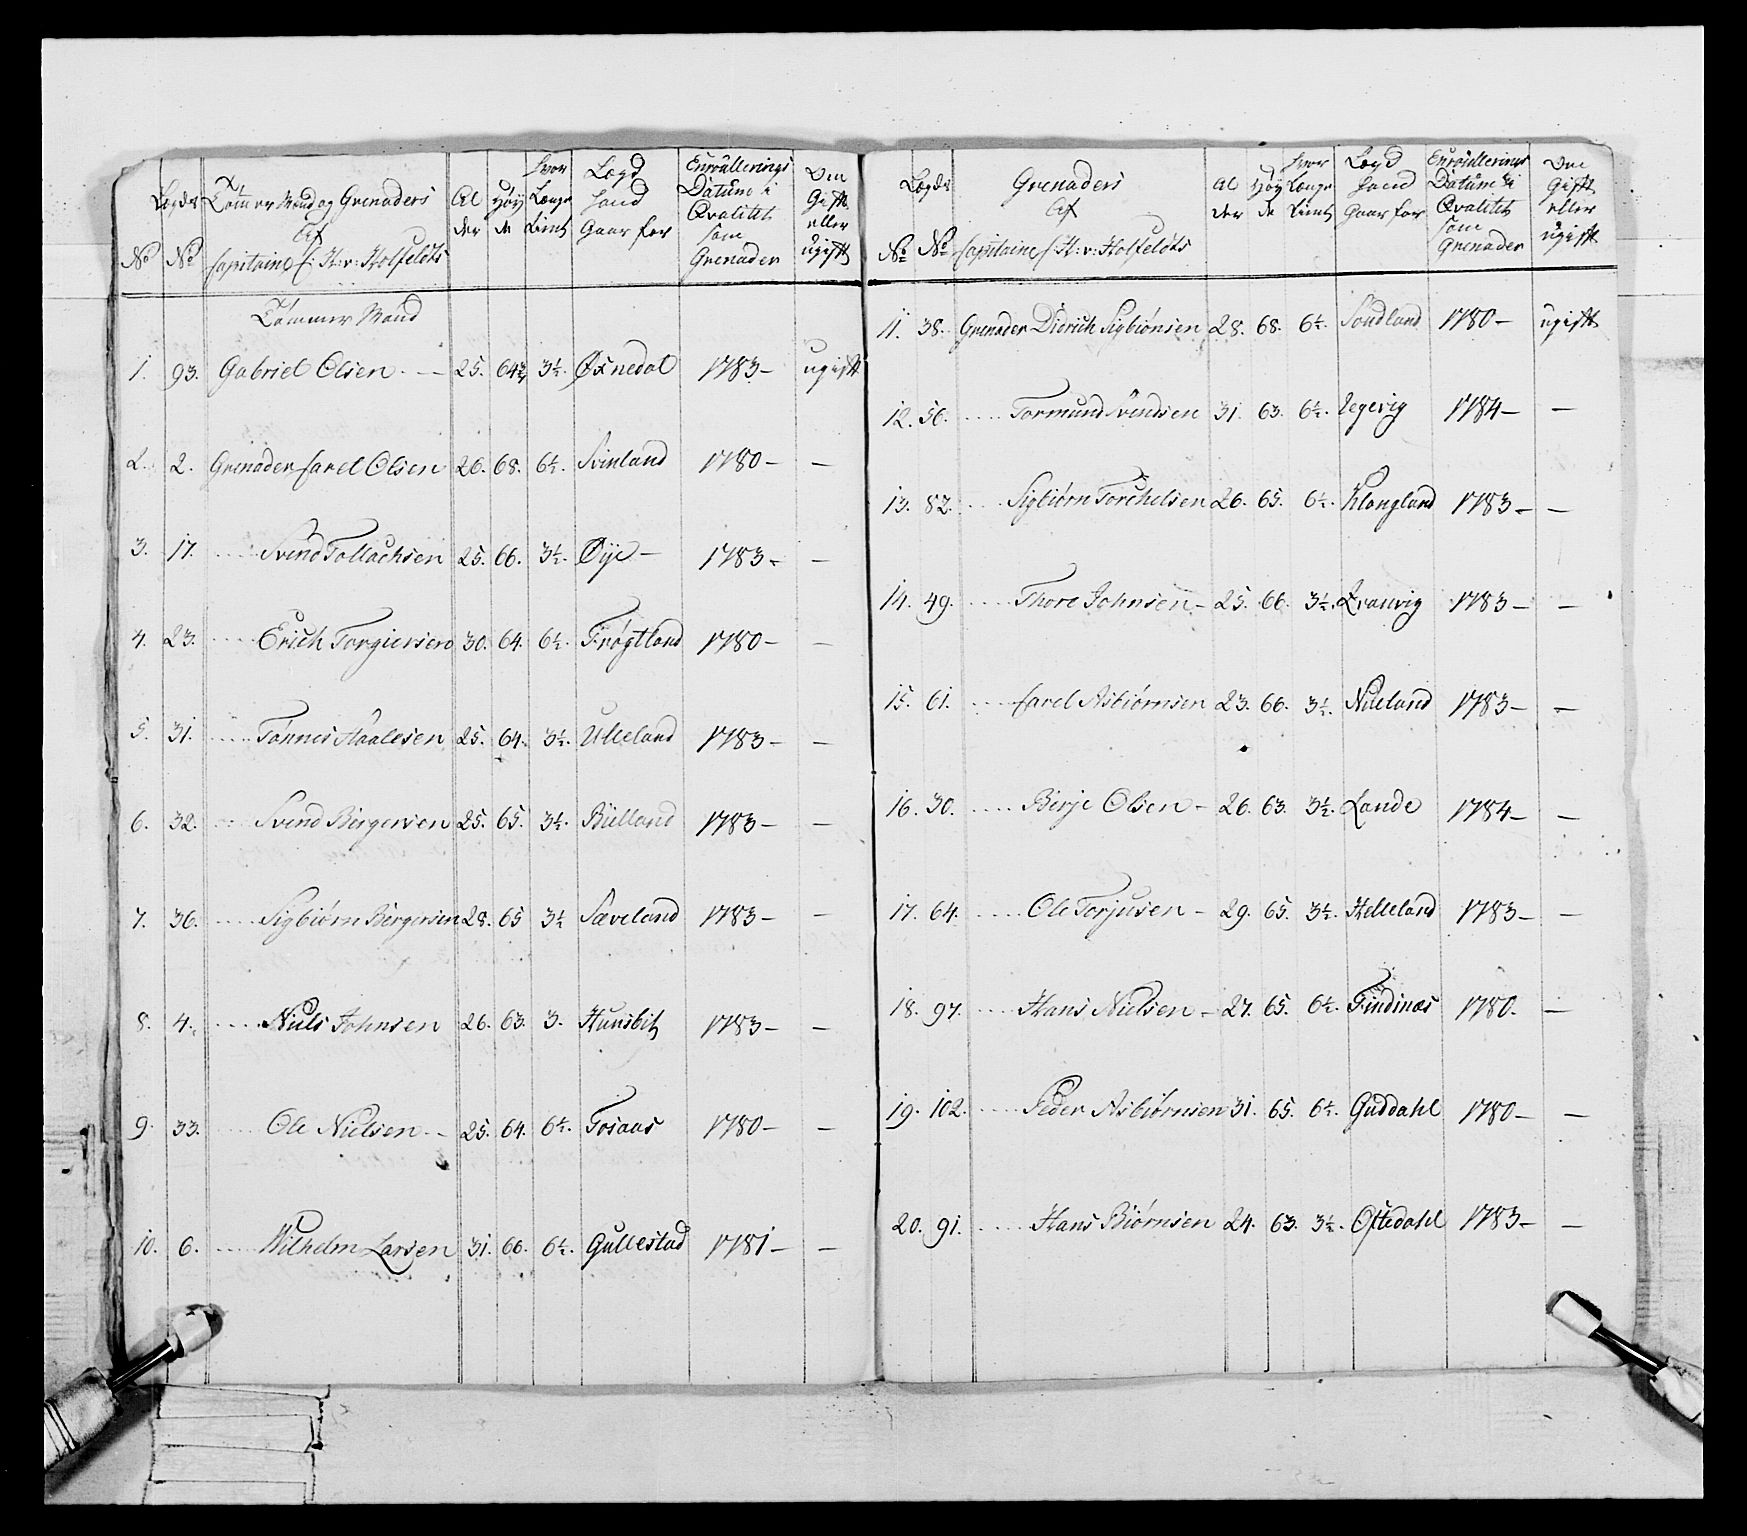 No
Legds No
Tømmer Mand og Grenaders Af Capitaine C: H: v: Holfeldts
Al der
Høy de
hvor Længe tient
Legd hand Gaar for
Enroullerings Datum i Qvalitet som Grenader
Om Gift eller ugift
Tømmer Mand
1. 93. Gabriel Olsen. — 25. 64¾ 3½. Øxnedal 1783 — ugift
2. 2. Grenader Carel Olsen 26. 68. 6½. Svinland 1780 — —
3. 17. ..... Svend Tollachsen 25. 66. 3½. Øye — 1783 — —
4. 23. ..... Erich Torgiersen 30. 64. 6½. Frøgtland 1780 — —
5. 31. ..... Tønnes Aaalesen 25. 64. 3½. Ulleland 1783 — —
6. 32. ..... Svend Børgersen 25. 65. 3½. Büeland 1783 — —
7. 36. ..... Sigbiørn Børgersen 28. 65 3½ Sæveland 1783 — —
8. 4. ..... Niels Johnsen 26. 63. 3. Hunsbit 1783 — —
9. 33. ..... Ole Nielsen. — 25. 64. 6½. Fosaas 1780 — —
10. 6. ..... Wilhelm Larsen 31. 66. 6½. Gullestad 1781 — —
No
Legds No
Grenaders Af Capitaine C: H: v: Holfeldts
Al der
Høy de
hvor Længe tient
Legd hand Gaar for
Enroullerings Datum i Qvalitet som Grenader
Om Gift eller ugift
11. 38. Grenader Didrich Sigbiønsen 28. 68. 6½. Sondland 1780 — ugift
12. 56. ..... Tormund Svendsen 31. 63. 6½. Egevig 1784 — —
13. 82. ..... Sigbiørn Torchelsen 26. 65. 6½. Klongland 1783 — —
14. 49. ..... Thore Johnsen — 25. 66. 3½. Qvanvig 1783 — —
15. 61. ..... Carel Asbiørnsen 23. 66. 3½. Nileland 1783 — —
16. 30. ..... Berje Olsen — 26. 63. 3½. Lande 1784 — —
17. 64. ..... Ole Torjusen — 29. 65. 3½. Helleland 1783 — —
18. 97. ..... Hans Nielsen — 27. 65. 6½. Findinæs 1780. —
19. 102. ..... Peder Asbiørnsen 31. 65. 6½. Guddahl 1780 — —
20. 91. ..... Hans Biørnsen 24. 63. 3½. Oftedahl 1783 — —